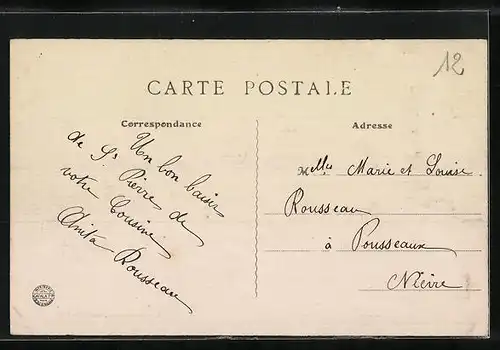 12
CARTE POSTALE
Correspondance
Un bon baiser
de St Pierre de
votre Cousine
Anita Rousseau
Adresse
Melles Marie et Louise
Rousseau
à Pousseaux
Nièvre